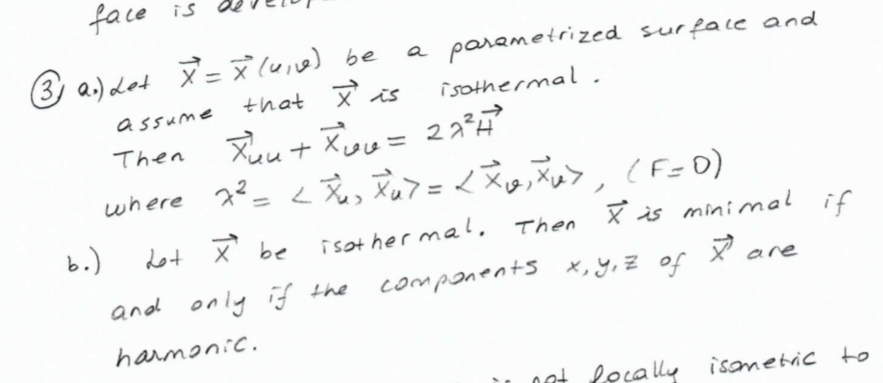 face is
③ a.) Let $\vec{X} = \vec{X}(u,v)$ be a parametrized surface and
assume that $\vec{X}$ is isothermal.
Then $\vec{X}_{uu} + \vec{X}_{vv} = 2\lambda^2 \vec{H}$
where $\lambda^2 = \langle \vec{X}_u, \vec{X}_u \rangle = \langle \vec{X}_v, \vec{X}_v \rangle$, (F=0)
b.) Let $\vec{X}$ be isothermal. Then $\vec{X}$ is minimal if
and only if the components x, y, z of $\vec{X}$ are
harmonic.
not locally isometric to